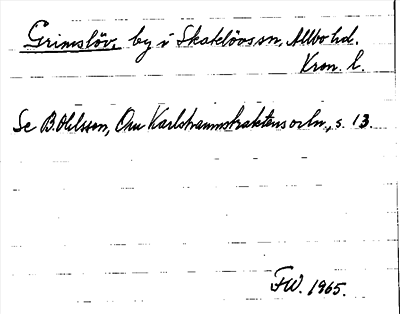 Grimslöv, by i Skatelövs sn, Allbo hd.
Kron. l.
Se B. Ohlsson, Om Karlshamnstraktens o r ln, s. 13
FW. 1965.